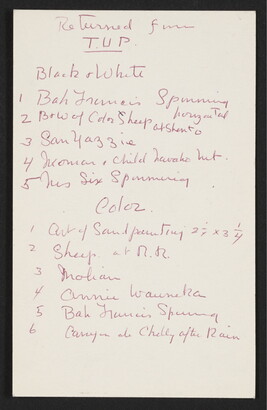 Returned from
T.U.P.
Black & White
1 Bah Francis Spinning
2 B&W of Color Sheep horizontal
at Shonto
3 San Yazzie
4 Woman & Child Navaho
5 Mrs Six Spinning
Color
1 Art of Sandpainting 2 1/4 x 3 1/4
2 Sheep at
3 Mohair
4 Annie Wauneka
5 Bah Francis Spinning
6 Canyon de Chelly after Rain